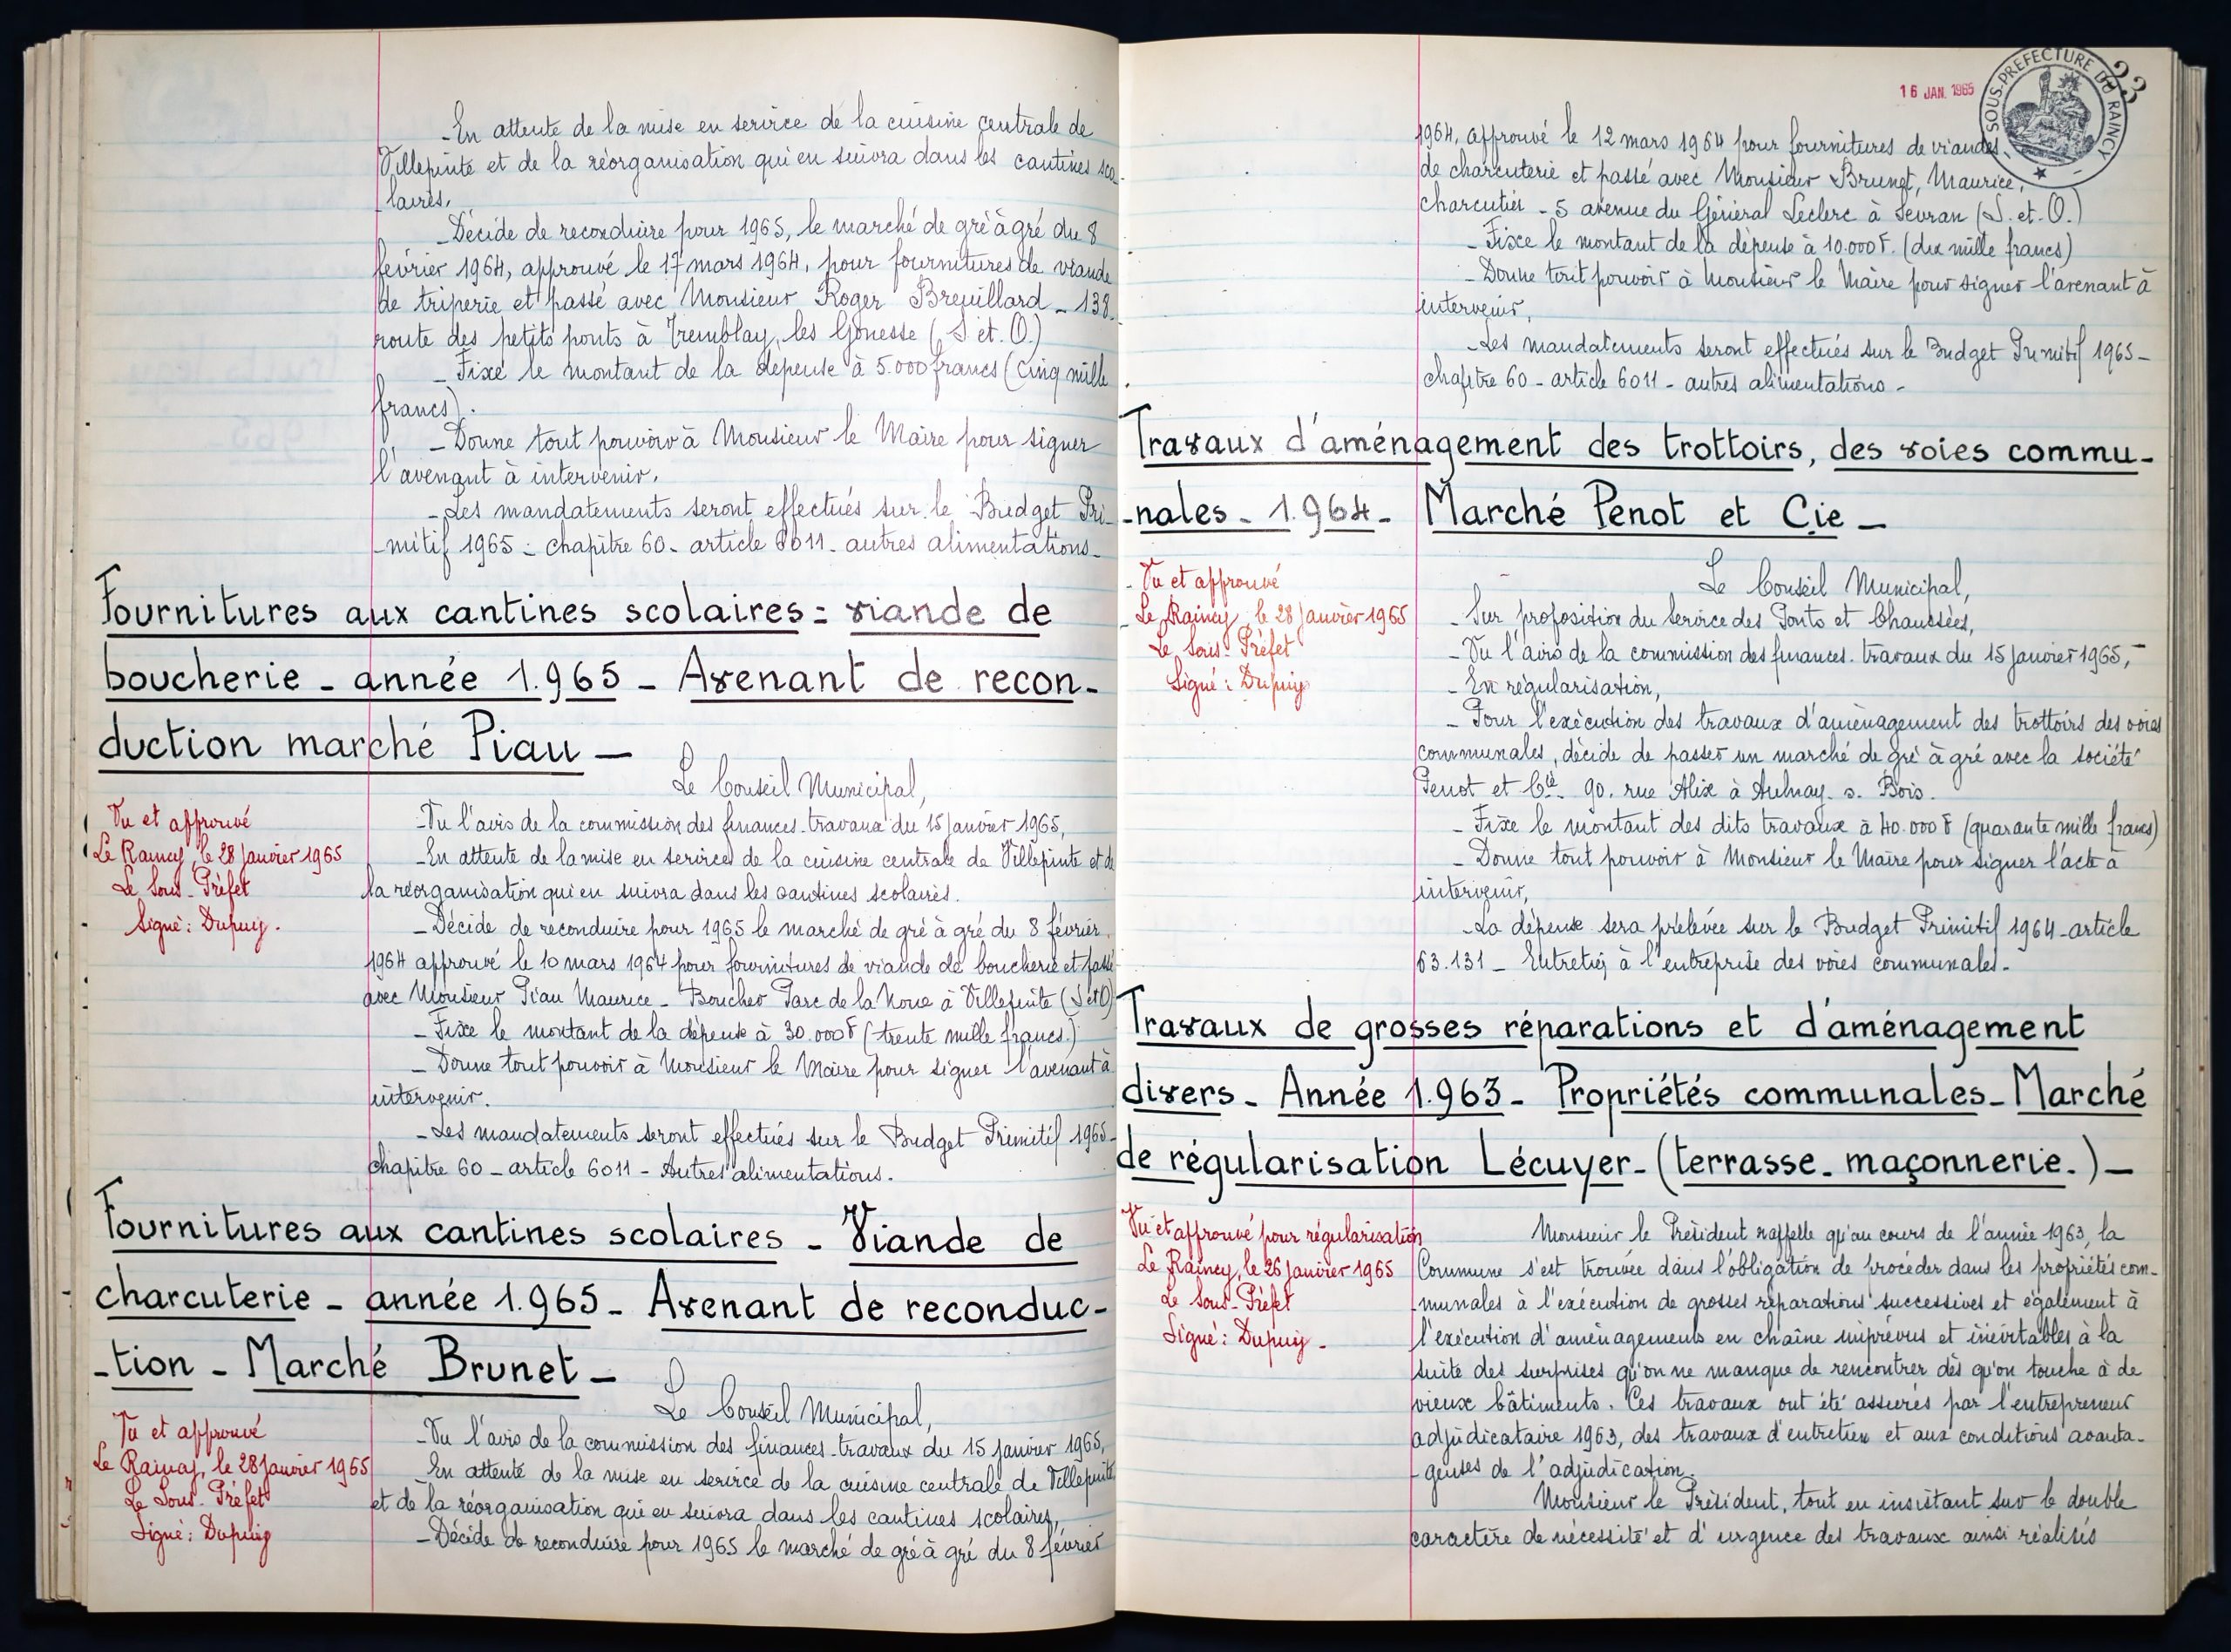 - En attente de la mise en service de la cuisine centrale de
Villepinte et de la réorganisation qui en suivra dans les cantines sco-
-laires,
- Décide de reconduire pour 1965, le marché de gré à gré du 8
février 1964, approuvé le 17 mars 1964, pour fournitures de viande
de triperie et passé avec Monsieur Roger Breuillard - 138.
route des petits ponts à Tremblay, les Gonesse (S. et. O.)
- Fixe le montant de la dépense à 5.000 francs (cinq mille
francs).
- Donne tout pouvoir à Monsieur le Maire pour signer
l'avenant à intervenir.
- Les mandatements seront effectués sur le Budget Pri-
-mitif 1965 - chapitre 60 - article 6011 - autres alimentations -
Fournitures aux cantines scolaires = viande de
boucherie - année 1.965 - Avenant de recon-
duction marché Piau -
Le Conseil Municipal,
Vu et approuvé
Le Raincy, le 28 janvier 1965
Le Sous-Préfet
Signé : Dupuy.
- Vu l'avis de la commission des finances-travaux du 15 janvier 1965,
- En attente de la mise en services de la cuisine centrale de Villepinte et de
la réorganisation qui en suivra dans les cantines scolaires.
- Décide de reconduire pour 1965 le marché de gré à gré du 8 février
1964 approuvé le 10 mars 1964 pour fournitures de viande de boucherie et passé
avec Monsieur Piau Maurice - Boucher Parc de la Noue à Villepinte (S. et O)
- Fixe le montant de la dépense à 30.000 F (trente mille francs.)
- Donne tout pouvoir à Monsieur le Maire pour signer l'avenant à
intervenir.
- Les mandatements seront effectués sur le Budget Primitif 1965 -
chapitre 60 - article 6011 - Autres alimentations.
Fournitures aux cantines scolaires - Viande de
charcuterie - année 1.965 - Avenant de reconduc-
-tion - Marché Brunet -
Le Conseil Municipal,
Vu et approuvé
Le Raincy, le 28 janvier 1965
Le Sous-Préfet
Signé : Dupuy
- Vu l'avis de la commission des finances-travaux du 15 janvier 1965,
En attente de la mise en service de la cuisine centrale de Villepinte
et de la réorganisation qui en suivra dans les cantines scolaires,
- Décide de reconduire pour 1965 le marché de gré à gré du 8 février
16 JAN. 1965
SOUS-PREFECTURE DU RAINCY
23
1964, approuvé le 12 mars 1964 pour fournitures de viandes
de charcuterie et passé avec Monsieur Brunet, Maurice,
charcutier - 5 avenue du Général Leclerc à Sevran (S. et. O.)
- Fixe le montant de la dépense à 10.000 F. (dix mille francs)
- Donne tout pouvoir à Monsieur le Maire pour signer l'avenant à
intervenir,
- Les mandatements seront effectués sur le Budget Primitif 1965 -
chapitre 60 - article 6011 - autres alimentations -
Travaux d'aménagement des trottoirs, des voies commu-
-nales - 1.964 - Marché Penot et Cie -
Le Conseil Municipal,
Vu et approuvé
Le Raincy, le 28 janvier 1965
Le Sous-Préfet
Signé : Dupuy
- Sur proposition du service des Ponts et Chaussées,
- Vu l'avis de la commission des finances. travaux du 15 janvier 1965,
- En régularisation,
- Pour l'exécution des travaux d'aménagement des trottoirs des voies
communales, décide de passer un marché de gré à gré avec la société
Penot et Cie 90. rue Alix à Aulnay. s. Bois.
- Fixe le montant des dits travaux à 40.000 F (quarante mille francs)
- Donne tout pouvoir à Monsieur le Maire pour signer l'acte à
intervenir,
- La dépense sera prélevée sur le Budget Primitif 1964 - article
63.131 - Entretien à l'entreprise des voies communales -
Travaux de grosses réparations et d'aménagement
divers - Année 1.963 - Propriétés communales - Marché
de régularisation Lécuyer - (terrasse - maçonnerie.) -
Vu et approuvé pour régularisation
Le Raincy, le 26 janvier 1965
Le Sous-Préfet
Signé : Dupuy -
Monsieur le Président rappelle qu'au cours de l'année 1963, la
Commune s'est trouvée dans l'obligation de procéder dans les propriétés com-
-munales à l'exécution de grosses réparations successives et également à
l'exécution d'aménagements en chaîne imprévus et inévitables à la
suite des surprises qu'on ne manque de rencontrer dès qu'on touche à de
vieux bâtiments. Ces travaux ont été assurés par l'entrepreneur
adjudicataire 1963, des travaux d'entretien et aux conditions avanta-
-geuses de l'adjudication.
Monsieur le Président, tout en insistant sur le double
caractère de nécessité et d'urgence des travaux ainsi réalisés